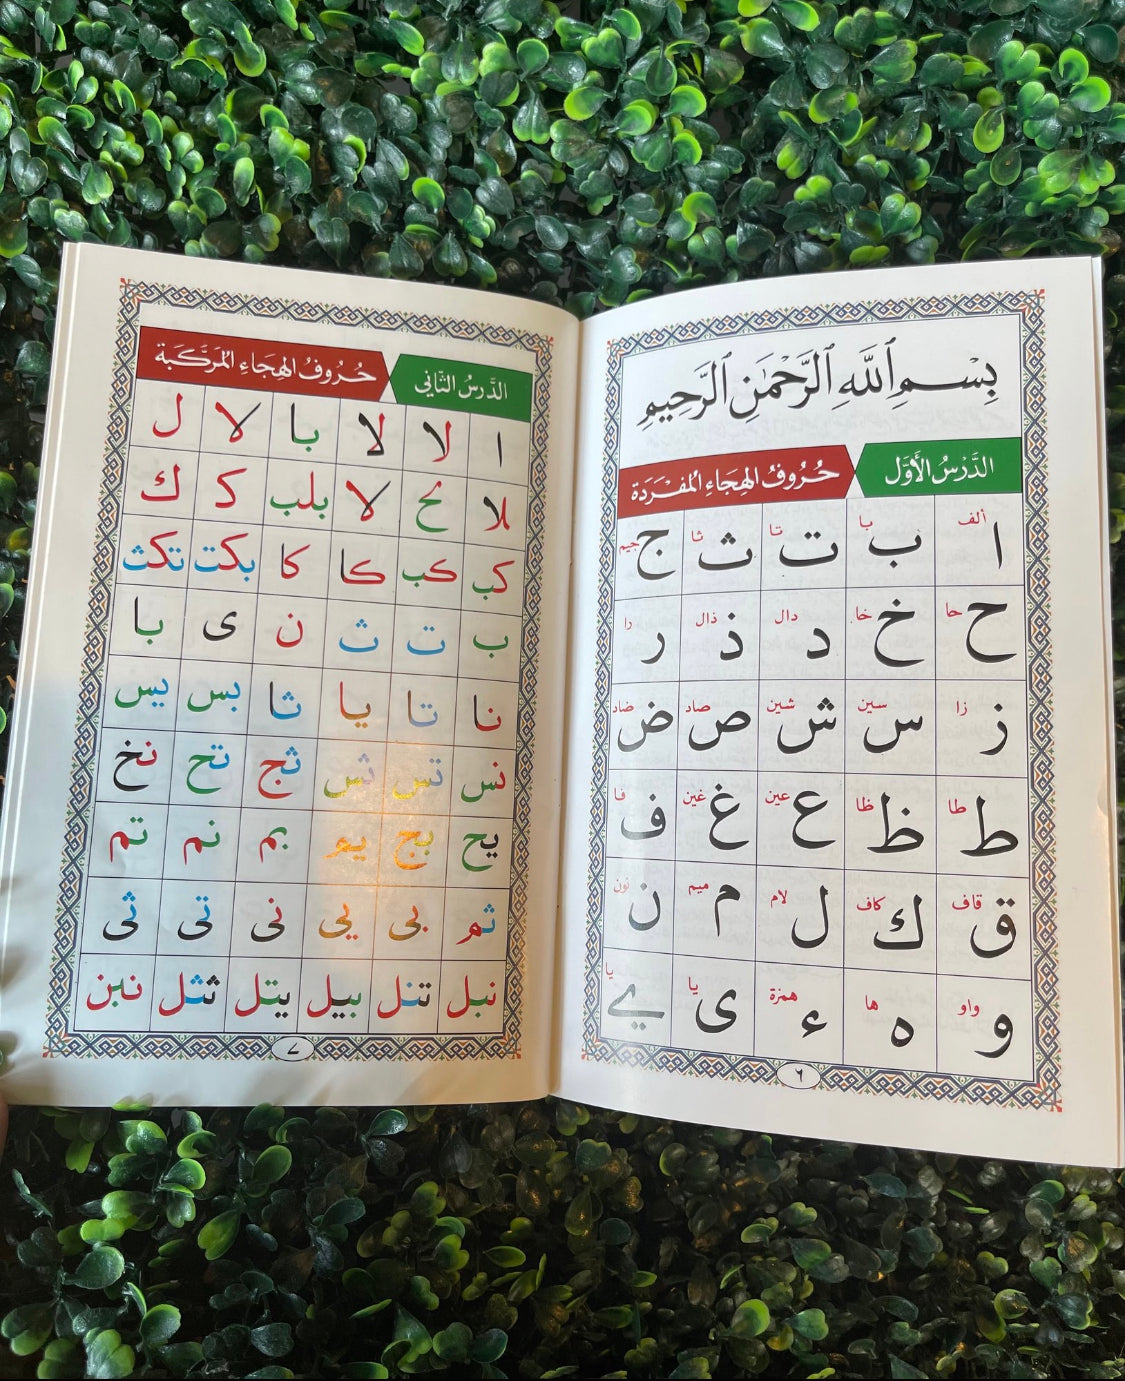 بِسْمِ ٱللَّهِ ٱلرَّحْمَٰنِ ٱلرَّحِيمِ
الدَّرْسُ الْأَوَّل حُرُوفُ الهِجَاءِ المُفْرَدَة
ا ألف ب با ت تا ث ثا ج جيم
ح حا خ خا د دال ذ ذال ر را
ز زا س سين ش شين ص صاد ض ضاد
ط طا ظ ظا ع عين غ غين ف فا
ق قاف ك كاف ل لام م ميم ن نون
و واو ه ها ء همزة ى يا ے يا
٦
الدَّرسُ الثَّاني حُرُوفُ الهِجَاءِ المُرَكَّبَة
ا لا لا با لا ل
بلا لح لا بلب كـ ك
كب كب كا كا بكت تكث
ب ت ث ن ى با
نا تا يا ثا بس يس
نس تس ثس ثج تح نخ
يح بج يم بم نم تم
ثم بى يى نى تى ثى
نبل تنل بيل يتل ثثل نبن
٧